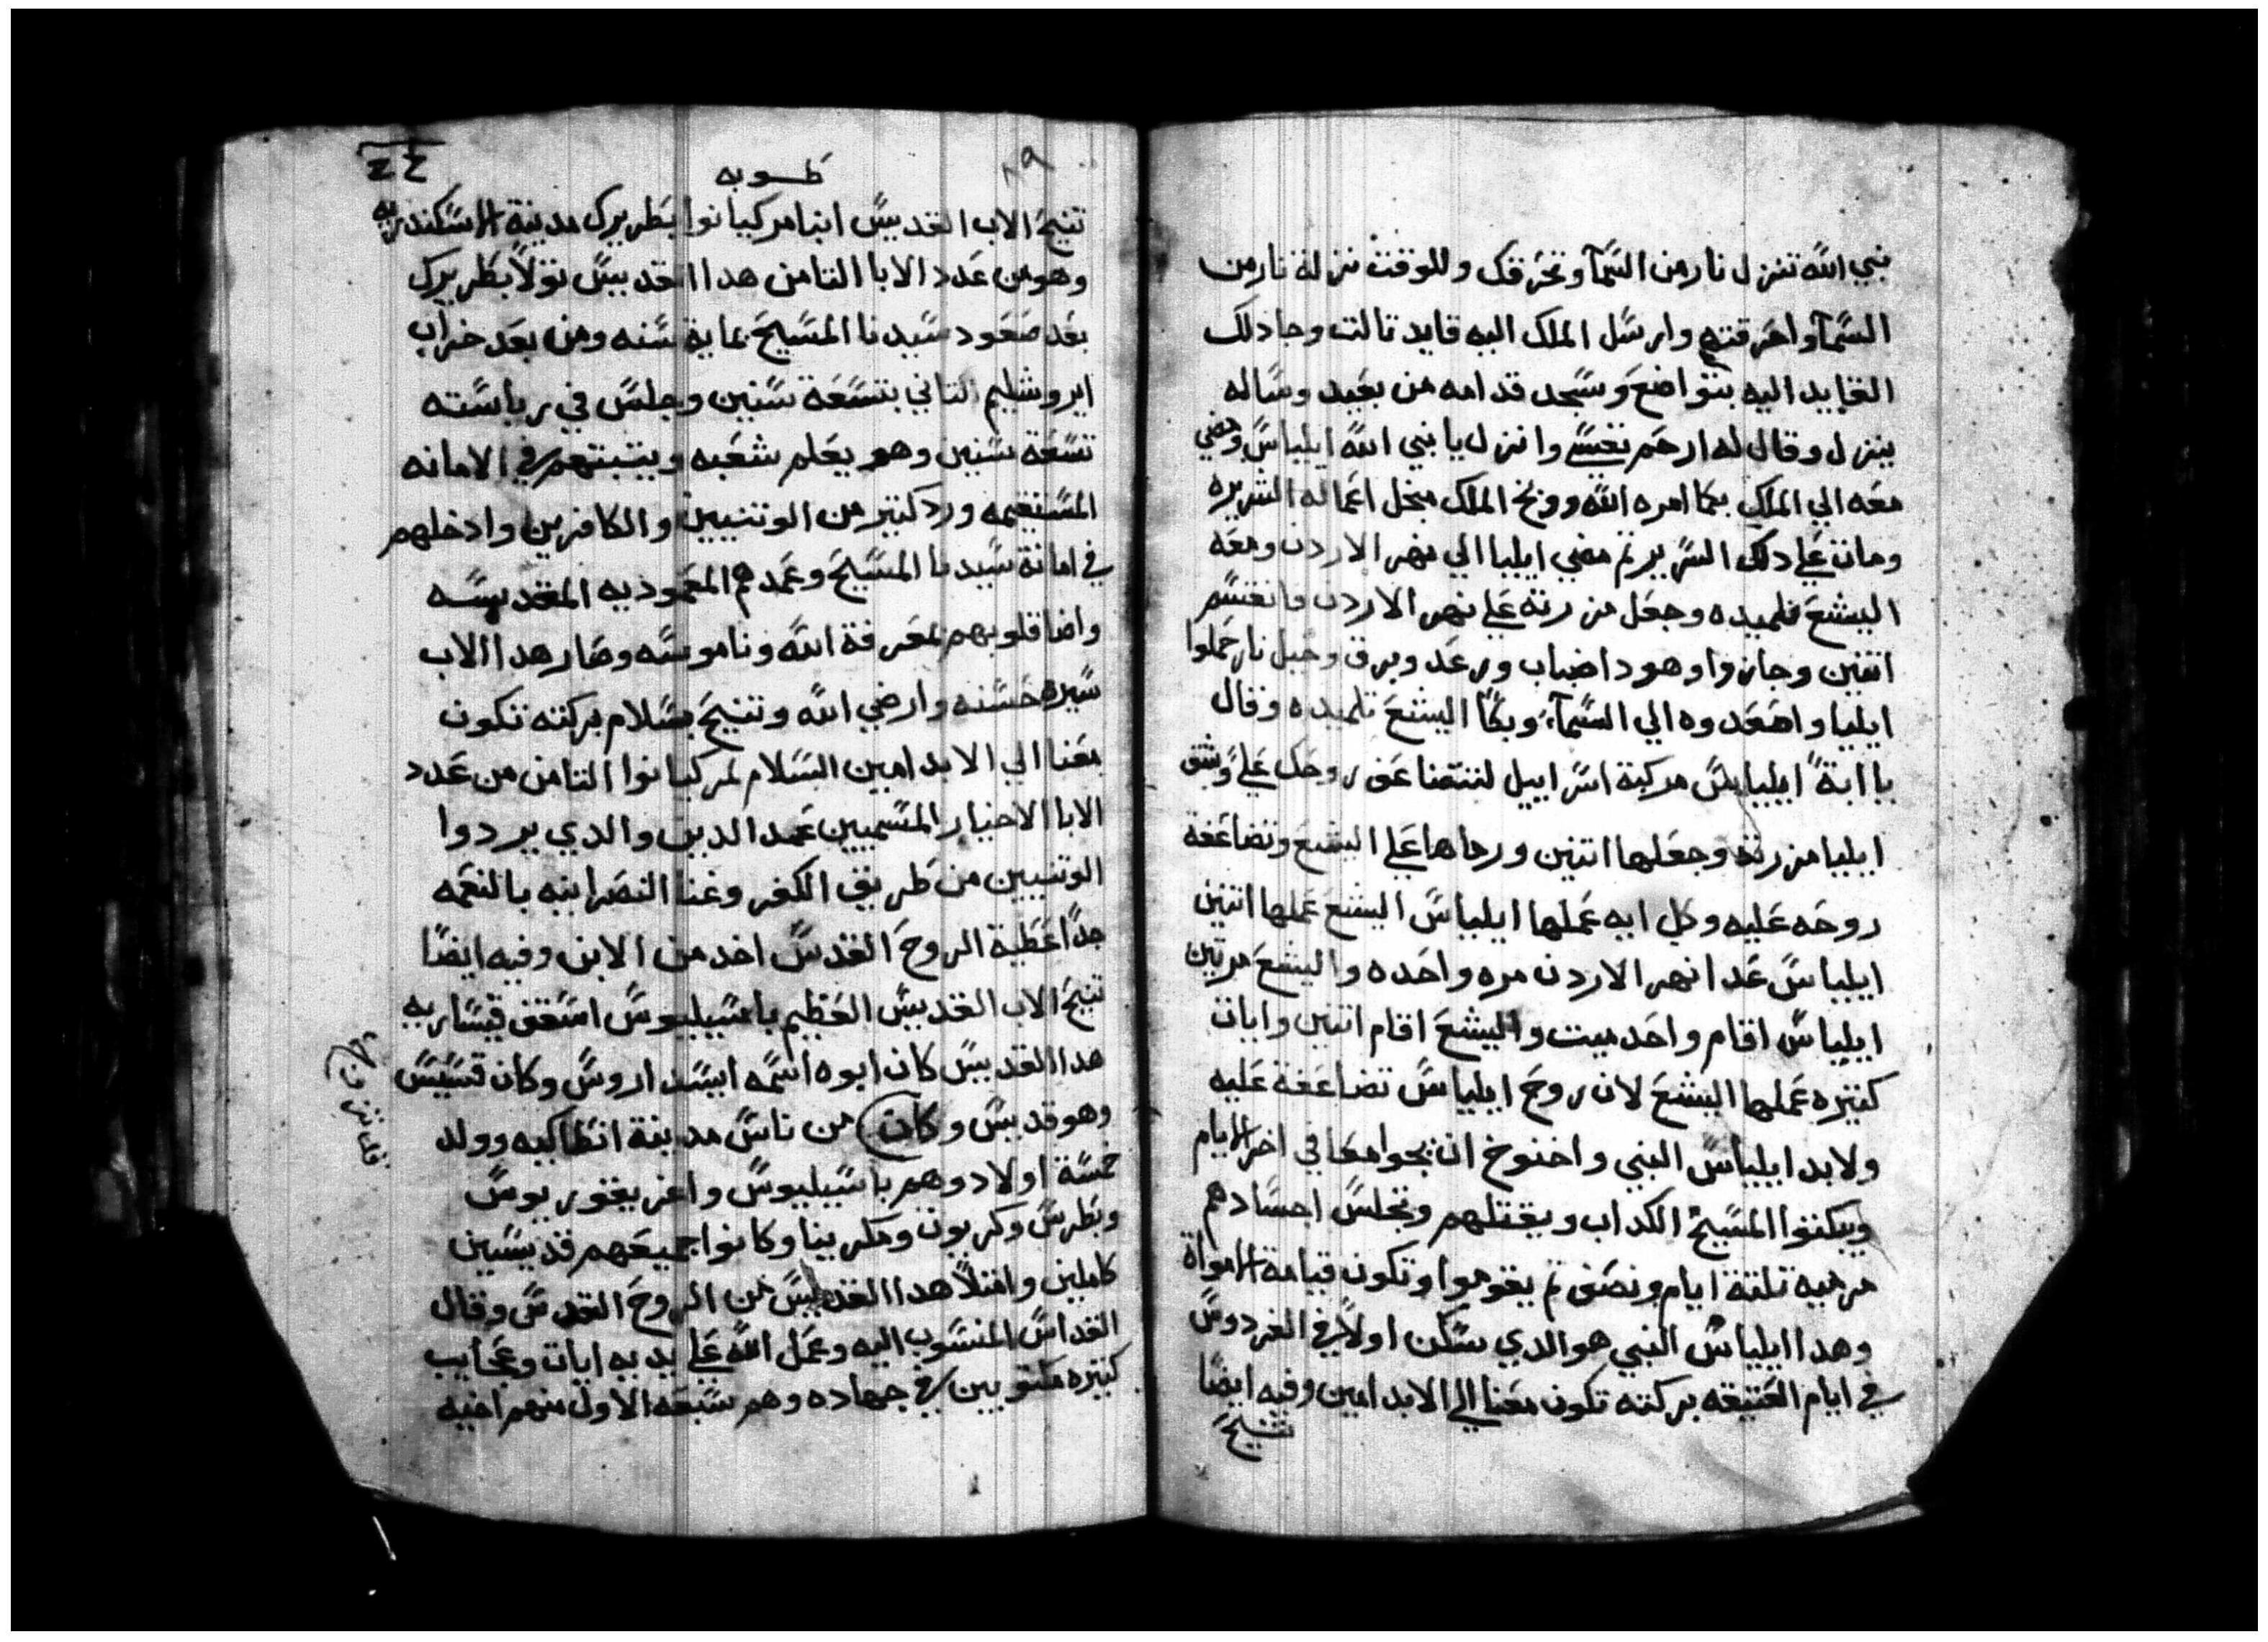 نبي الله تنزل نار من السمآ وتحرقك وللوقت نزلة نار من
السمآ واحرقتهم وارسل الملك اليه قايد تالت وجا دلك
القايد اليه بتواضع وسجد قدامه من بعيد وساله
ينزل وقال له ارحم نفسي وانزل يا نبي الله ايلياس ومضي
معه الي الملك بما امره الله ووبخ الملك من اعماله الشريره
ومات علي دلك السرير تم مضي ايليا الي نهر الاردن ومعه
اليشع تلميده وجعل مزرته علي نهر الاردن فانقسم
اتنين وجازوا وهودا ضباب ورعد وبرق وخيل نار حملوا
ايليا واصعدوه الي السمآ وبكا اليشع تلميده وقال
يا ابة ايلياس مركبة اسراييل لتتضاعف روحك علي وشق
ايليا مزرته وجعلها اتنين ورماها علي اليشع وتضاعفة
روحه عليه وكل ايه عملها ايلياس اليشع عملها اتنين
ايلياس عدا نهر الاردن مره واحده واليشع مرتين
ايلياس اقام واحد ميت واليشع اقام اتنين وايات
كتيره عملها اليشع لان روح ايلياس تضاعفة عليه
ولابد ايلياس النبي واخنوخ ان يجوا معا في اخر الايام
ويبكتوا المسيح الكداب ويقتلهم وتجلس اجسادهم
مرميه تلتة ايام ونصف تم يقوموا وتكون قيامة الامواة
وهدا ايلياس النبي هو الدي سكن اولا في الفردوس
في ايام العتيقه بركته تكون معنا الي الابد امين وفيه ايضا
تنيح
٨٩
طوبه
تنيح الاب القديس انبا مركيانوا بطريرك مدينة الاسكندريه
وهو من عدد الابا التامن هدا القديس تولا بطريرك
بعد صعود سيدنا المسيح بماية سنه ومن بعد خراب
ايروشليم التاني بتسعة سنين وجلس في رياسته
تسعة سنين وهو يعلم شعبه ويتبتهم في الامانه
المستقيمه ورد كتير من الوتنيين والكافرين وادخلهم
في امانة سيدنا المسيح وعمدهم المعموديه المقدسه
واضا قلوبهم بمعرفة الله وناموسه وصار هدا الاب
سيره حسنه وارضي الله وتنيح بسلام بركته تكون
معنا الي الابد امين السلام لمركيانوا التامن من عدد
الابا الاحبار المسميين عمد الدين والدي يردوا
الوتنيين من طريق الكفر وغنا النصرانيه بالنعمه
جدا عطية الروح القدس اخد من الابن وفيه ايضا
تنيح الاب القديس العظيم باسيليوس اسقف قيساريه
هدا القديس كان ابوه اسمه ايسيداروس وكان قسيس
وهو قديس وكان من ناس مدينة انطاكيه وولد
خمسة اولاد وهم باسيليوس واغريغوريوس
وبطرس وكريون ومكرينا وكانوا جميعهم قديسين
كاملين وامتلا هدا القديس من الروح القدس وقال
القداس المنسوب اليه وعمل الله علي يديه ايات وعجايب
كتيره مكتوبين في جهاده وهم سبعه الاول منهم اخيه